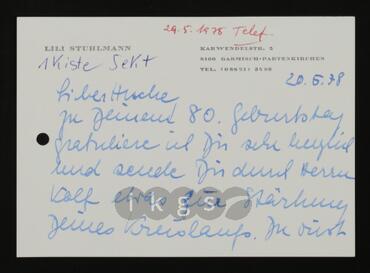 29.5.1978 Telef.
LILI STUHLMANN
KARWENDELSTR. 2
8100 GARMISCH-PARTENKIRCHEN
1 Kiste Sekt
20.5.78
Lieber
zu Deinem 80. Geburtstag
gratuliere ich Dir sehr herzlich
und sende Dir durch Herrn
Wolf etwas zur Stärkung
Deines Kreislaufs. Du
ikgs